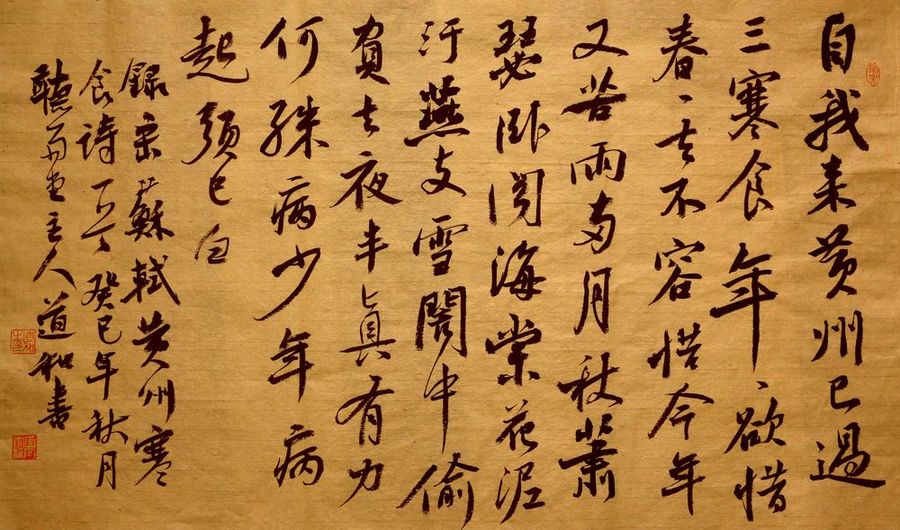 自我来黄州已過
三寒食年、欲惜
春、去不容惜今年
又苦雨两月秋蕭
瑟卧闻海棠花泥
汙燕支雪闇中偷
負去夜半真有力
何殊病少年病
起須已白
録宋蘇軾黄州寒
食詩一首癸巳年秋月
聴雨堂主人道和書